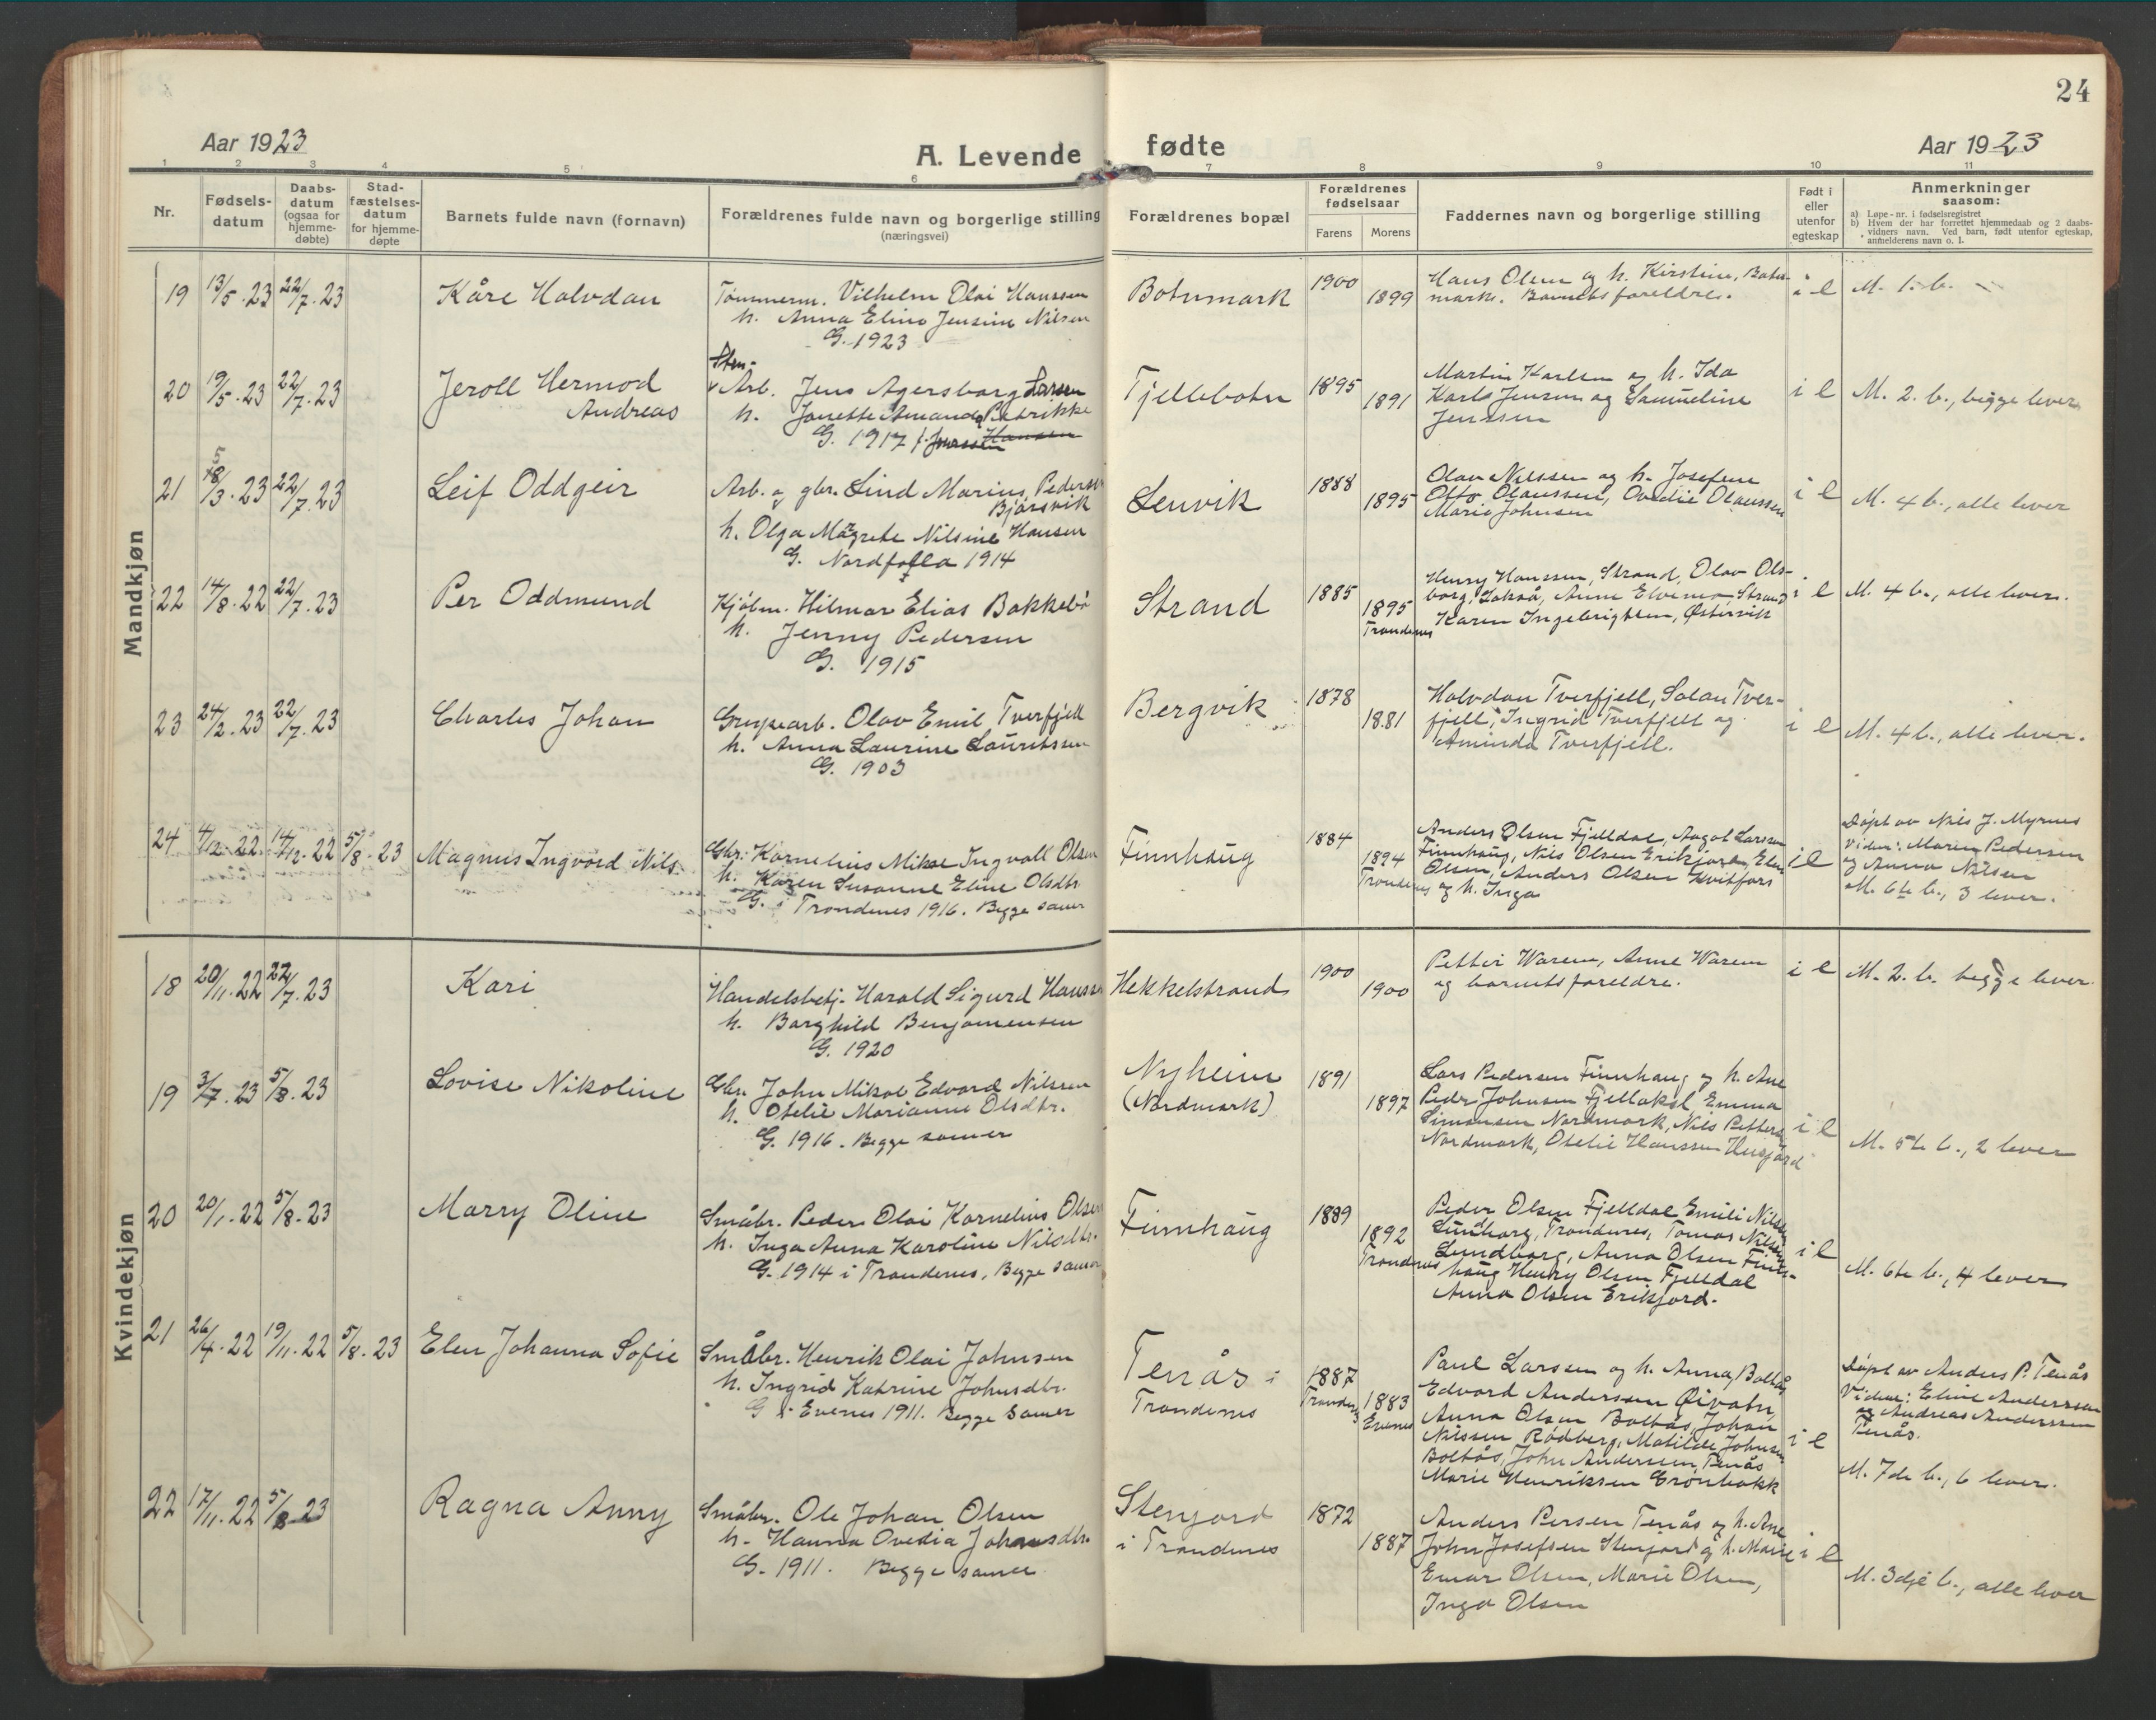 24
Aar 1923
A. Levende fødte
Aar 1923
1 2 3 4 5 6 7 8 9 10 11
Nr.
Fødsels-
datum
Daabs-
datum
(ogsaa for
hjemme-
døbte)
Stad-
fæstelses-
datum
for hjemme-
døpte
Barnets fulde navn (fornavn)
Forældrenes fulde navn og borgerlige stilling
(næringsvei)
Forældrenes bopæl
Forældrenes
fødselsaar
Farens Morens
Faddernes navn og borgerlige stilling
Født i
eller
utenfor
egteskap
Anmerkninger
saasom:
a) Løpe-nr. i fødselsregistret
b) Hvem der har forrettet hjemmedaab og 2 daabs-
vidners navn. Ved barn, født utenfor egteskap,
anmelderens navn o. l.
Mandkjøn
19 13/5.23 22/7.23
Kåre Halvdan
Tømmerm. Vilhelm Olai Hanssen
h. Anna Eline Jensine Nilsen
G. 1923
Botnmark
1900
1899
Hans Olsen og h. Kirstine, Botn-
mark. Barnets foreldre.
i e
M. 1. b.
20 19/5.23 22/7.23
Jeroll Hermod
Andreas
Arb. Jens Agersborg Larsen
h. Janette Amanda Petrikke
G. 1917 f. Jenssen Hansen
Tjellebotn
1895
1891
Martin Karlsen og h. Ida
Karl Jensen og Samueline
Jenssen
i e
M. 2. b., begge lever
21 18/3.23 22/7.23
5
Leif Oddgeir
Arb. og gbr. Lind Marius Pedersen
Bjørsvik
h. Olga Magrete Nilsine Hansen
G. Nordfolla 1914
Lenvik
1888
1895
Olav Nilssen og h. Josefine
Otto Olaussen, Ovedie Olaussen
Marie Johnsen
i e
M. 4 b., alle lever
22 14/8.22 22/7.23
Per Oddmund
Kjølm. Hilmar Elias Bakkebø
h. Jenny Pedersen
G. 1915
Strand
1885
1895
Trondenes
Henry Hanssen, Strand, Olav Ols-
borg, Lakså, Anne Elvemo Strand
Karen Ingebrigtsen, Østervik
i e
M. 4 b., alle lever.
23 24/2.23 22/7.23
Charles Johan
Grupearb. Olav Emil Tverfjell
h. Anna Laurine Lauritssen
G. 1903
Bergvik
1878
1881
Halvdan Tverfjell, Salan Tver-
fjell, Ingrid Tverfjell og
Aminda Tverfjell.
i e
M. 4 b., alle lever.
24 4/12.22 14/12.22 5/8.23
Magnus Ingvard Nils
Gbr. Kornelius Mikal Ingvall Olsen
h. Karen Susanne Eline Olsdtr.
G. i Trondenes 1916. Begge samer
Finnhaug
1884
1894
Trondenes
Anders Olsen Fjelldal, Aagot Larssen
Finnhaug, Nils Olsen Erikjord, Elen
Olsen, Anders Olsen Kvitfors
og h. Inga
i e
Døpt av Nils J. Myrnes
Vidner: Maren Pedersen
og Anna Nilsen
M. 6te b., 3 lever.
Kvindekjøn
18 20/11.22 22/7.23
Kari
Handelsbetj. Harald Sigurd Hanssen
h. Borghild Benjamensen
G. 1920
Hekkelstrand
1900
1900
Petter Waren, Anne Waren
og barnets foreldre.
i e
M. 2. b. begge lever.
19 3/7.23 5/8.23
Lovise Nikoline
Gbr. John Mikal Edvard Nilssen
h. Otelie Marianne Olsdtr.
G. 1916. Begge samer
Nyheim
(Nordmark)
1891
1897
Lars Pedersen Finnhaug og h. Ane
Peder Johnsen Fjellaksl, Emma
Simonsen Nordmark, Nils Petters
Nordmark, Otelie Hanssen Husjord
i e
M. 5te b., 2 lever
20 20/1.22 5/8.23
Marry Oline
Småbr. Peder Olai Kornelius Olsen
h. Inga Anna Karoline Nilsdtr.
G. 1914 i Trondenes, Begge samer
Finnhaug
1889
1892
Trondenes
Peder Olsen Fjelldal Emili Nilssen
Lundborg, Trondenes, Tomas Nilsen
Lundborg, Anna Olsen Finn-
haug Henry Olsen Fjelldal
Anna Olsen Erikjord.
i e
M. 6te b., 4 lever
21 26/4.22 19/11.22 5/8.23
Elen Johanna Sofie
Småbr. Henrik Olai Johnsen
h. Ingrid Katrine Johnsdtr.
G i Evenes 1911. Begge samer
Tenås i
Trondenes
1887
Trondenes
1883
Evenes
Paul Larssen og h. Anna, Boltås
Edvard Anderssen Øivatn,
Anna Olsen Boltås, Johan
Nilssen Rødberg, Matilde Johnsen
Boltås, John Anderssen, Tenås
Marie Henriksen Grønbakk
i e
Døpt av Anders P. Tenås
Vidner: Eline Anderssen
og Andreas Anderssen
Tenås.
M. 7de b., 6 lever.
22 17/11.22 5/8.23
Ragna Anny
Småbr. Ole Johan Olsen
h. Hanna Ovedia Johansdtr.
G. 1911. Begge samer
Stenjord
i Trondenes
1872
1887
Anders Persen Tenås og h. Ane
John Josefsen Stenjord og h. Marie
Einar Olsen, Marie Olsen,
Inga Olsen
i e
M. 3dje b., alle lever